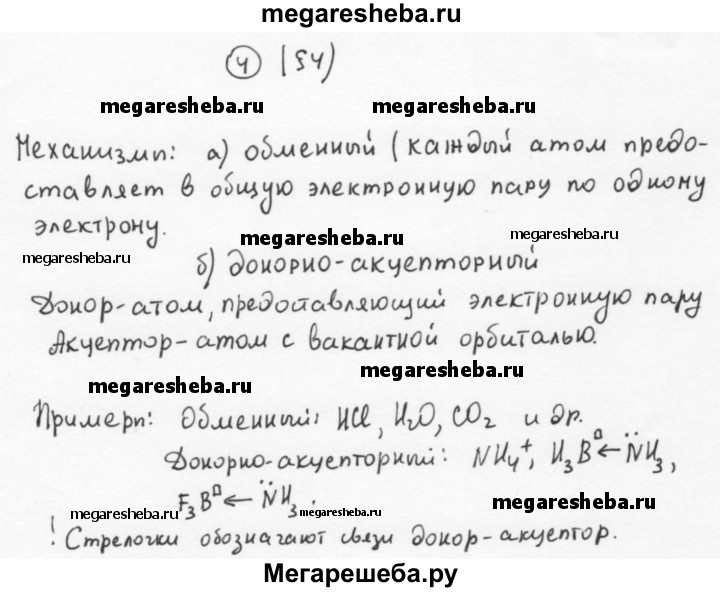 megaresheba.ru
4 (§4)
megaresheba.ru megaresheba.ru
Механизмы: а) обменный (каждый атом предо-
ставляет в общую электронную пару по одному
электрону.
megaresheba.ru megaresheba.ru
megaresheba.ru
б) донорно-акцепторный
Донор-атом, предоставляющий электронную пару
Акцептор-атом с вакантной орбиталью.
megaresheba.ru
megaresheba.ru
Примеры: Обменный: HCl, H2O, CO2 и др.
Донорно-акцепторный: NH4+, H3B□←N̈H3,
F3B□←N̈H3.
megaresheba.ru megaresheba.ru megaresheba.ru
! Стрелочки обозначают связи донор-акцептор.
Мегарешеба.ру